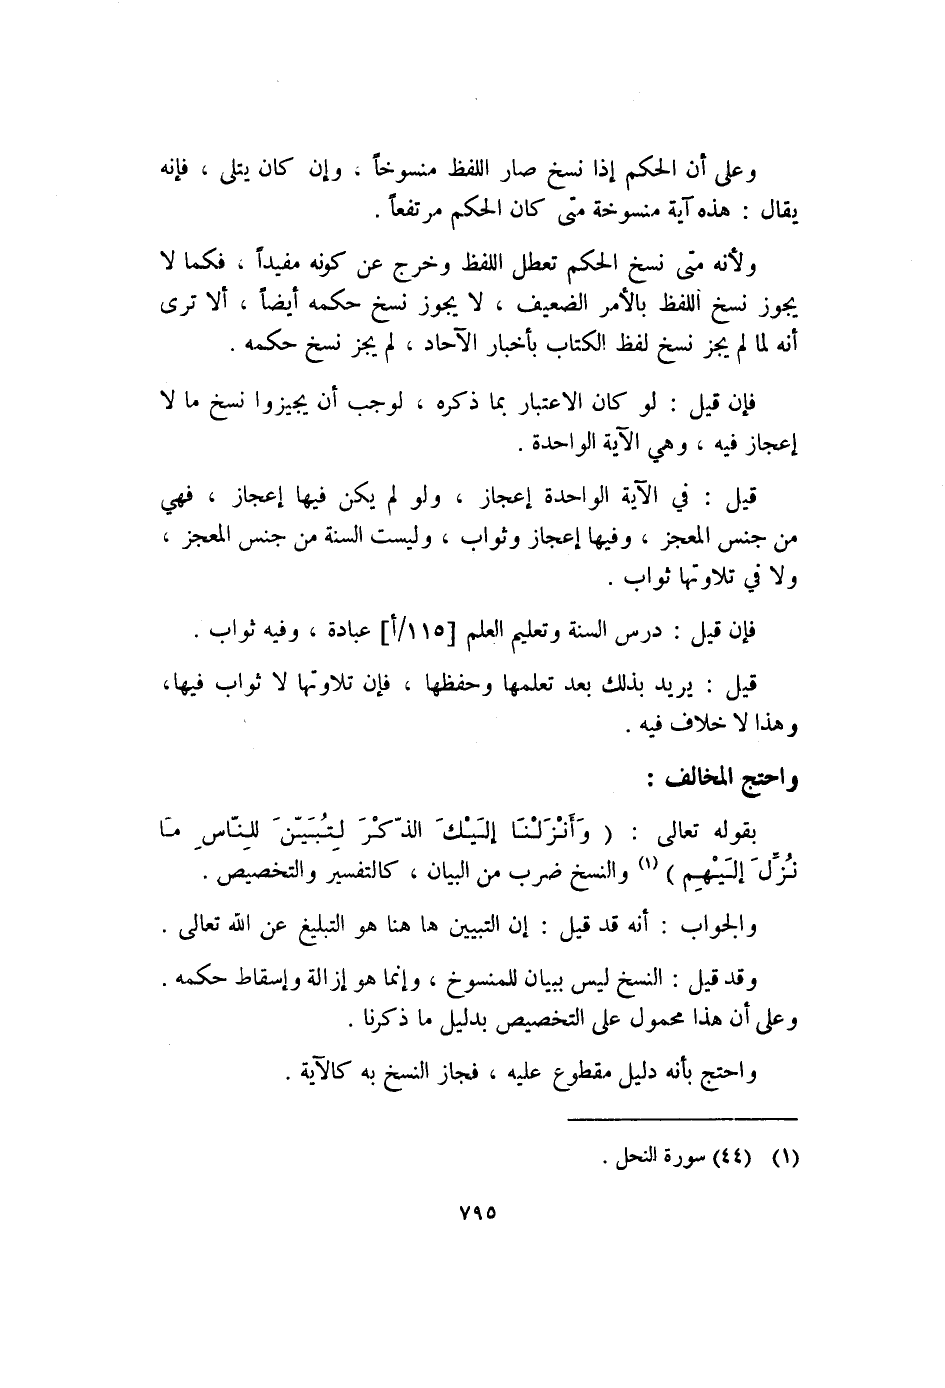 وعلى أن الحكم إذا نسخ صار اللفظ منسوخاً ، وإن كان يتلى ، فإنه
يقال : هذه آية منسوخة متى كان الحكم مرتفعاً .
ولأنه متى نسخ الحكم تعطل اللفظ وخرج عن كونه مفيداً ، فكما لا
يجوز نسخ اللفظ بالأمر الضعيف ، لا يجوز نسخ حكمه أيضاً ، ألا ترى
أنه لما لم يجز نسخ لفظ الكتاب بأخبار الآحاد ، لم يجز نسخ حكمه .
فإن قيل : لو كان الاعتبار بما ذكره ، لوجب أن يجيزوا نسخ ما لا
إعجاز فيه ، وهي الآية الواحدة .
قيل : في الآية الواحدة إعجاز ، ولو لم يكن فيها إعجاز ، فهي
من جنس المعجز ، وفيها إعجاز وثواب ، وليست السنة من جنس المعجز ،
ولا في تلاوتها ثواب .
فإن قيل : درس السنة وتعليم العلم [١١٥/أ] عبادة ، وفيه ثواب .
قيل : يريد بذلك بعد تعلمها وحفظها ، فإن تلاوتها لا ثواب فيها،
وهذا لا خلاف فيه .
واحتج المخالف :
بقوله تعالى : ( وَأَنْزَلْنَا إِلَيْكَ الذِّكْرَ لِتُبَيِّنَ لِلنَّاسِ مَا
نُزِّلَ إِلَيْهِم ) (١) والنسخ ضرب من البيان ، كالتفسير والتخصيص .
والجواب : أنه قد قيل : إن التبيين ها هنا هو التبليغ عن الله تعالى .
وقد قيل : النسخ ليس ببيان للمنسوخ ، وإنما هو إزالة وإسقاط حكمه .
وعلى أن هذا محمول على التخصيص بدليل ما ذكرنا .
واحتج بأنه دليل مقطوع عليه ، فجاز النسخ به كالآية .
(١) (٤٤) سورة النحل .
٧٩٥